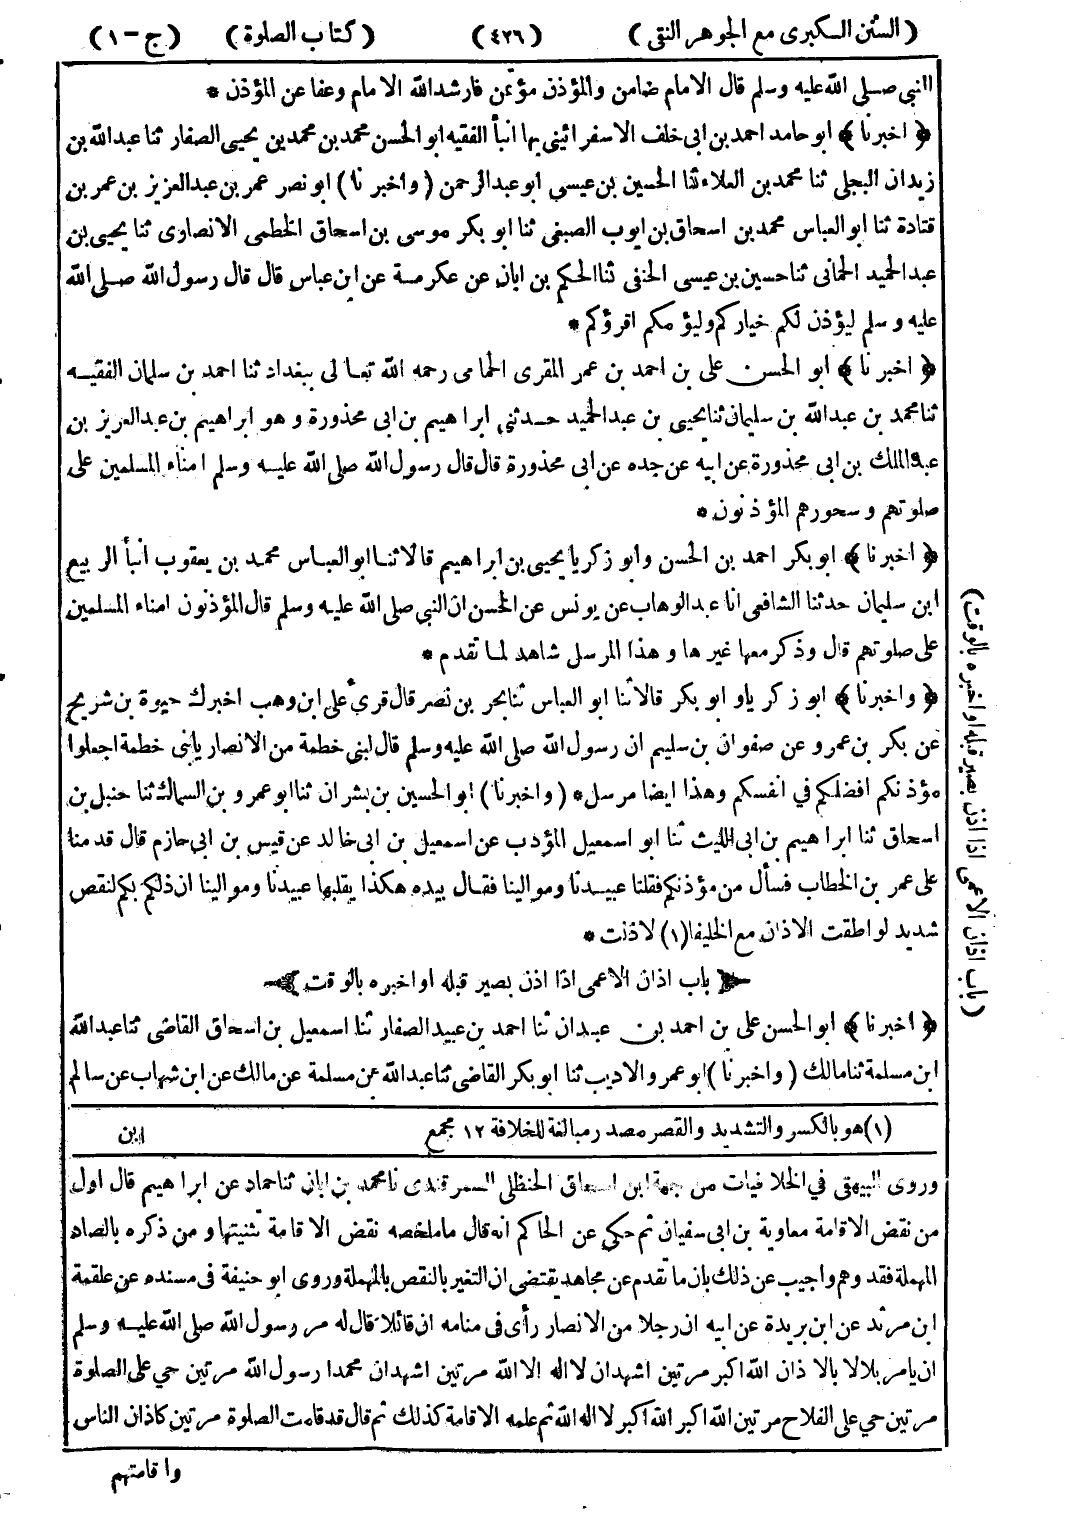 (السنن الكبرى مع الجوهر النقى) (٤٢٦) (كتاب الصلوة) (ج-١)
النبى صلى الله عليه وسلم قال الامام ضامن والمؤذن مؤتمن فارشد الله الامام وعفا عن المؤذن *
﴿ اخبرنا ﴾ ابو حامد احمد بن ابى خلف الاسفرائينى بها انبأ الفقيه ابو الحسن محمد بن محمد بن يحيى الصفار ثنا عبد الله بن
زيدان البجلى ثنا محمد بن العلاء ثنا الحسين بن عيسى ابو عبد الرحمن (واخبرنا) ابو نصر عمر بن عبد العزيز بن عمر بن
قتادة ثنا ابو العباس محمد بن اسحاق بن ايوب الصبغى ثنا ابو بكر موسى بن اسحاق الخطمى الانصارى ثنا يحيى بن
عبد الحميد الحمانى ثنا حسين بن عيسى الحنفى ثنا الحكم بن ابان عن عكرمة عن ابن عباس قال قال رسول الله صلى الله
عليه وسلم ليؤذن لكم خياركم وليؤمكم اقرؤكم *
﴿ اخبرنا ﴾ ابو الحسن على بن احمد بن عمر المقرى الحمامى رحمه الله تعالى ببغداد ثنا احمد بن سلمان الفقيه
ثنا محمد بن عبد الله بن سليمان ثنا يحيى بن عبد الحميد حدثنى ابراهيم بن ابى محذورة وهو ابراهيم بن عبد العزيز بن
عبد الملك بن ابى محذورة عن ابيه عن جده عن ابى محذورة قال قال رسول الله صلى الله عليه وسلم امناء المسلمين على
صلوتهم وسحورهم المؤذنون *
﴿ اخبرنا ﴾ ابو بكر احمد بن الحسن وابو زكريا يحيى بن ابراهيم قالا ثنا ابو العباس محمد بن يعقوب انبأ الربيع
ابن سليمان حدثنا الشافعى انا عبد الوهاب عن يونس عن الحسن ان النبى صلى الله عليه وسلم قال المؤذنون امناء المسلمين
على صلوتهم قال وذكر معها غيرها وهذا المرسل شاهد لما تقدم *
﴿ واخبرنا ﴾ ابو زكريا وابو بكر قالا ثنا ابو العباس ثنا بحر بن نصر قال قرئ على ابن وهب اخبرك حيوة بن شريح
عن بكر بن عمرو عن صفوان بن سليم ان رسول الله صلى الله عليه وسلم قال لبنى خطمة من الانصار يا بنى خطمة اجعلوا
مؤذنكم افضلكم فى انفسكم وهذا ايضا مرسل * (واخبرنا) ابو الحسين بن بشران ثنا ابو عمرو بن السماك ثنا حنبل بن
اسحاق ثنا ابراهيم بن ابى الليث ثنا ابو اسمعيل المؤدب عن اسمعيل بن ابى خالد عن قيس بن ابى حازم قال قدمنا
على عمر بن الخطاب فسأل من مؤذنكم فقلنا عبيدنا وموالينا فقال بيده هكذا يقلبها عبيدنا وموالينا ان ذلكم بكم لنقص
شديد لو اطقت الاذان مع الخليفا(١) لاذنت *
باب اذان الاعمى اذا اذن بصير قبله او اخبره بالوقت
﴿ اخبرنا ﴾ ابو الحسن على بن احمد بن عبدان ثنا احمد بن عبيد الصفار ثنا اسمعيل بن اسحاق القاضى ثنا عبد الله
ابن مسلمة ثنا مالك (واخبرنا) ابو عمرو الاديب ثنا ابو بكر القاضى ثنا عبد الله عن مسلمة عن مالك عن ابن شهاب عن سالم
ابن
(١) هو بالكسر والتشديد والقصر مصدر مبالغة للخلافة ١٢ مجمع
وروى البيهقى فى الخلافيات من جهة ابن اسحاق الحنظلى السمرقندى نا محمد بن ابان ثنا حماد عن ابراهيم قال اول
من نقض الاقامة معاوية بن ابى سفيان ثم حكى عن الحاكم انه قال ما ملخصه نقض الاقامة تثنيتها ومن ذكره بالصاد
المهملة فقد وهم واجيب عن ذلك بان ما تقدم عن مجاهد يقتضى ان التغير بالنقص بالمهملة وروى ابو حنيفة فى مسنده عن علقمة
ابن مرثد عن ابن بريدة عن ابيه ان رجلا من الانصار رأى فى منامه ان قائلا قال له مر رسول الله صلى الله عليه وسلم
ان يامر بلالا بالاذان الله اكبر مرتين اشهد ان لا اله الا الله مرتين اشهد ان محمدا رسول الله مرتين حي على الصلوة
مرتين حي على الفلاح مرتين الله اكبر الله اكبر لا اله الله ثم علمه الاقامة كذلك ثم قال قد قامت الصلوة مرتين كاذان الناس
واقامتهم
(باب اذان الاعمى اذا اذن بصير قبله او اخبره بالوقت)